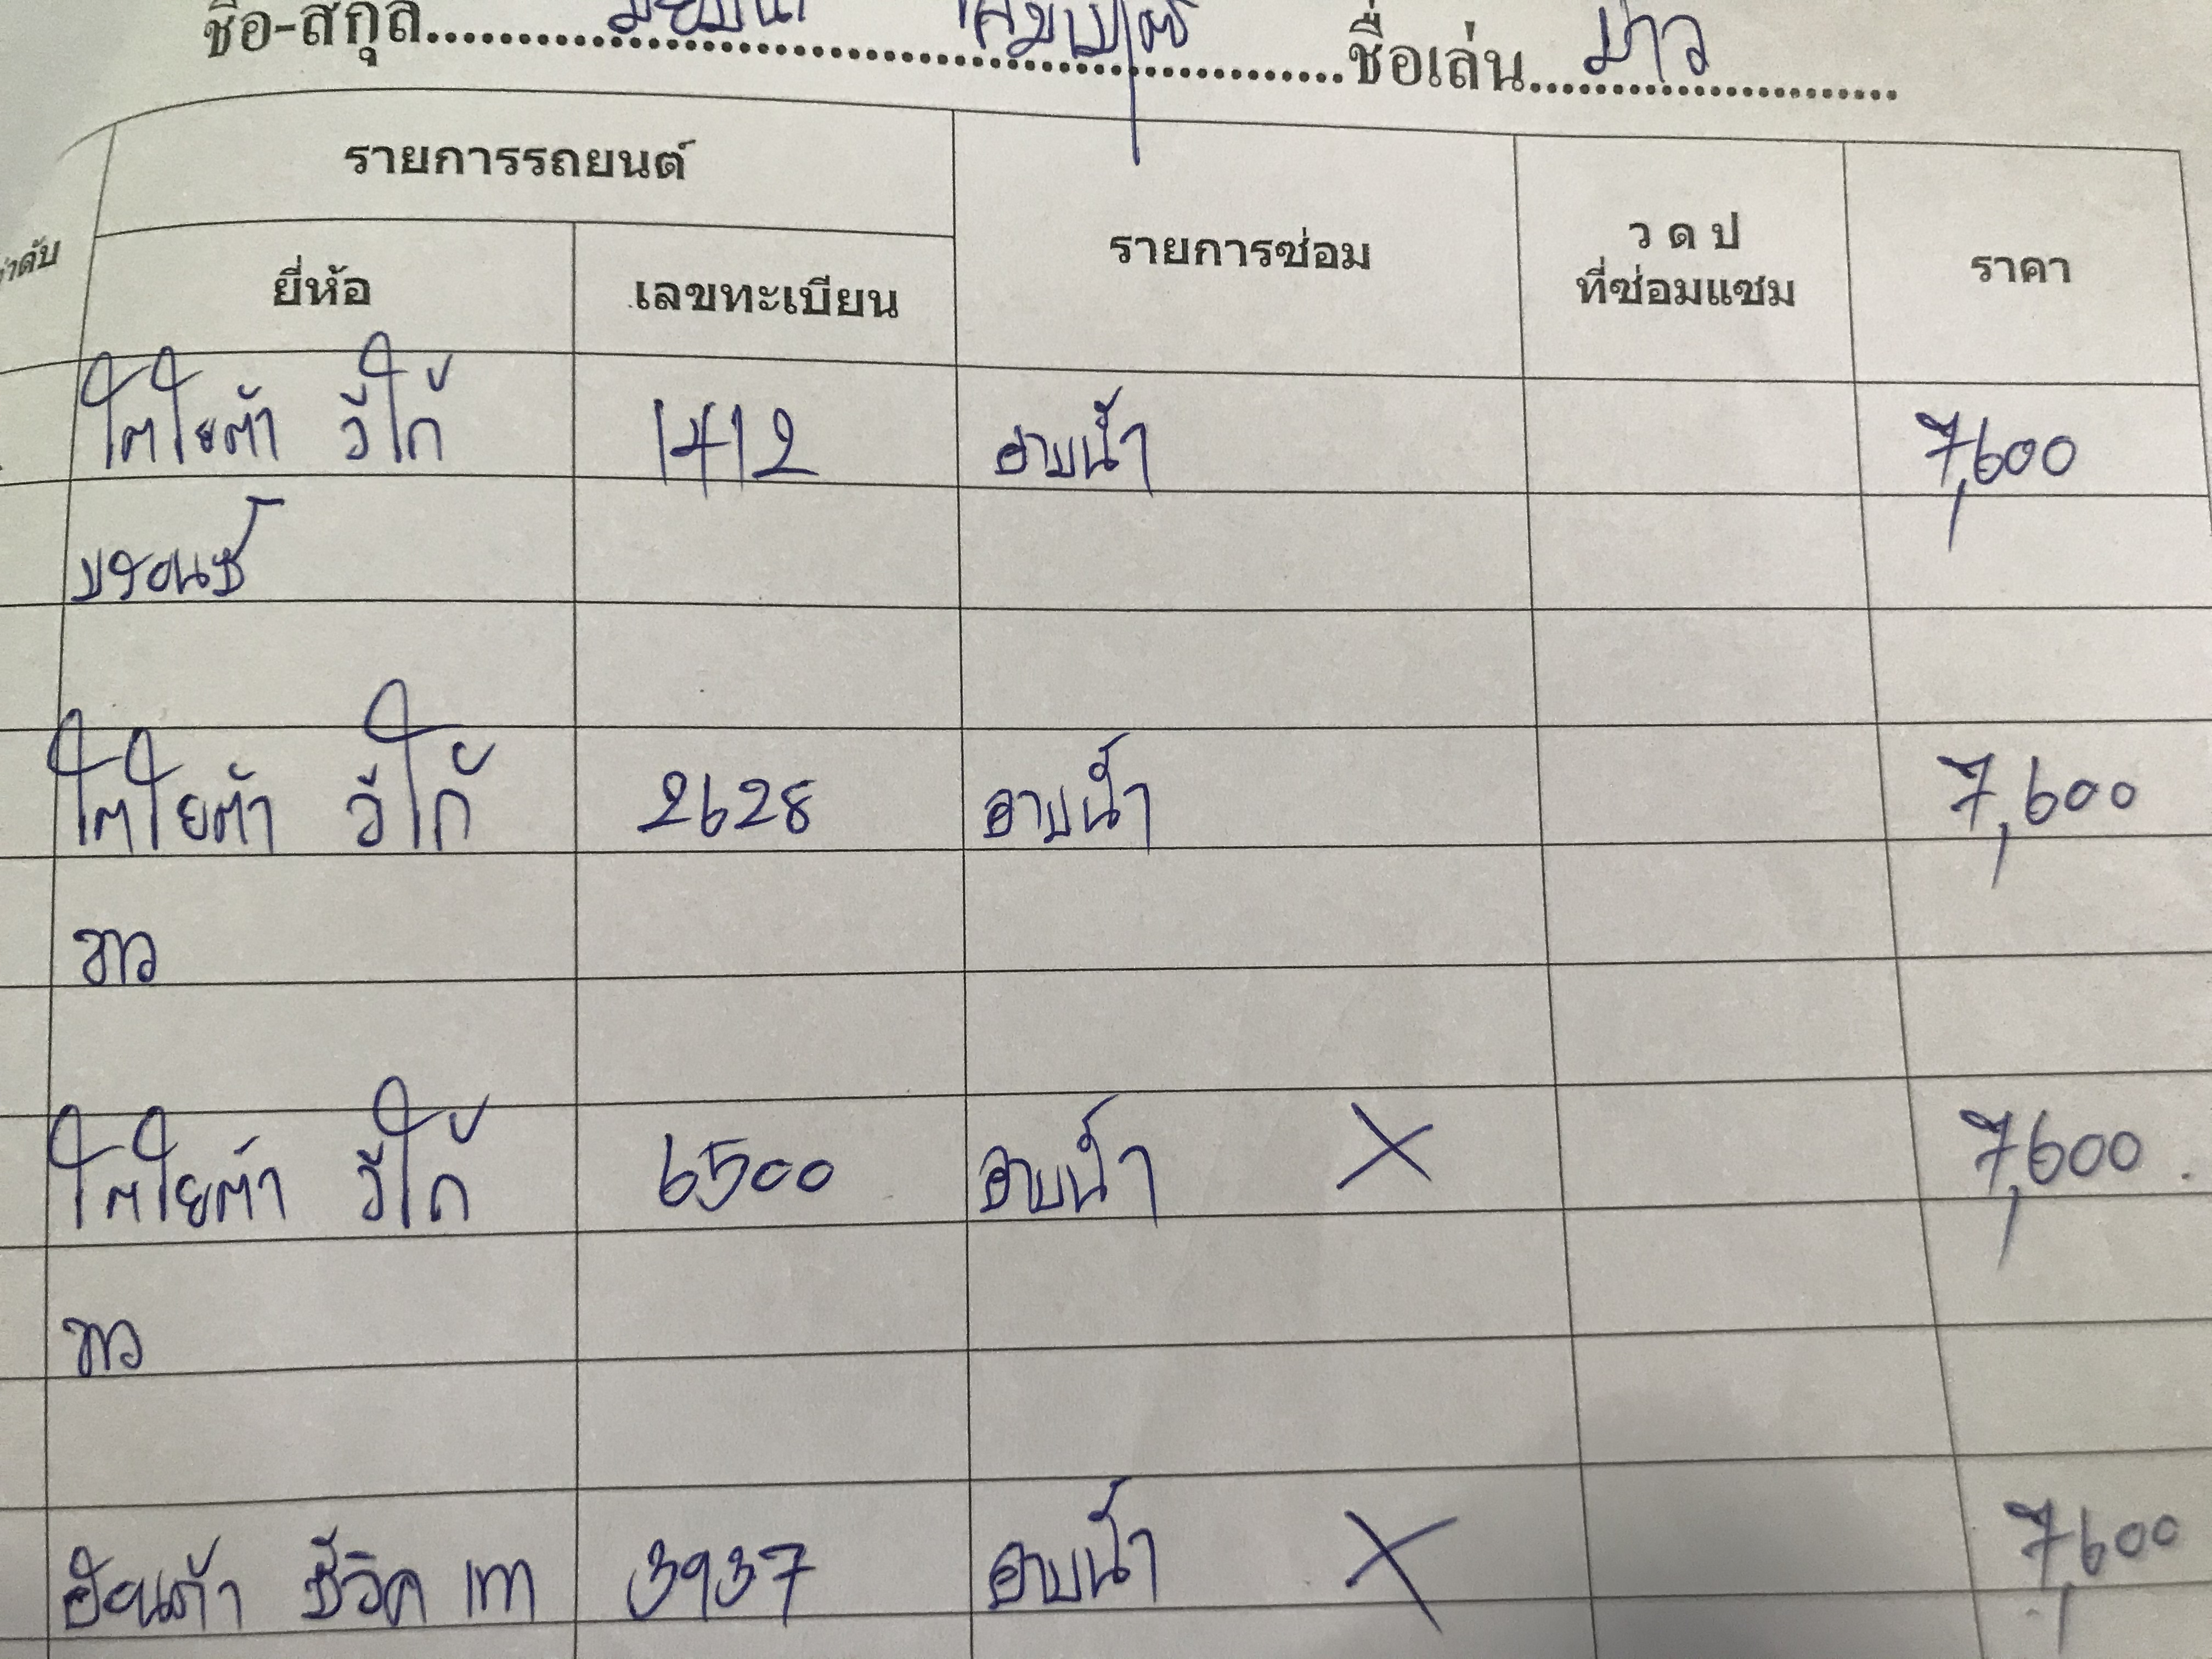 ชื่อ-สกุล........................ชื่อเล่น.....บ่าว.....
ลำดับ รายการรถยนต์ รายการซ่อม ว ด ป ที่ซ่อมแซม ราคา
ยี่ห้อ เลขทะเบียน
โตโยต้า วีโก้ 1412 อาบน้ำ 7,600
บรอนซ์
โตโยต้า วีโก้ 2628 อาบน้ำ 7,600
ขาว
โตโยต้า วีโก้ 6500 อาบน้ำ X 7,600
ขาว
ฮอนด้า ซีวิค เทา 3937 อาบน้ำ X 7,600